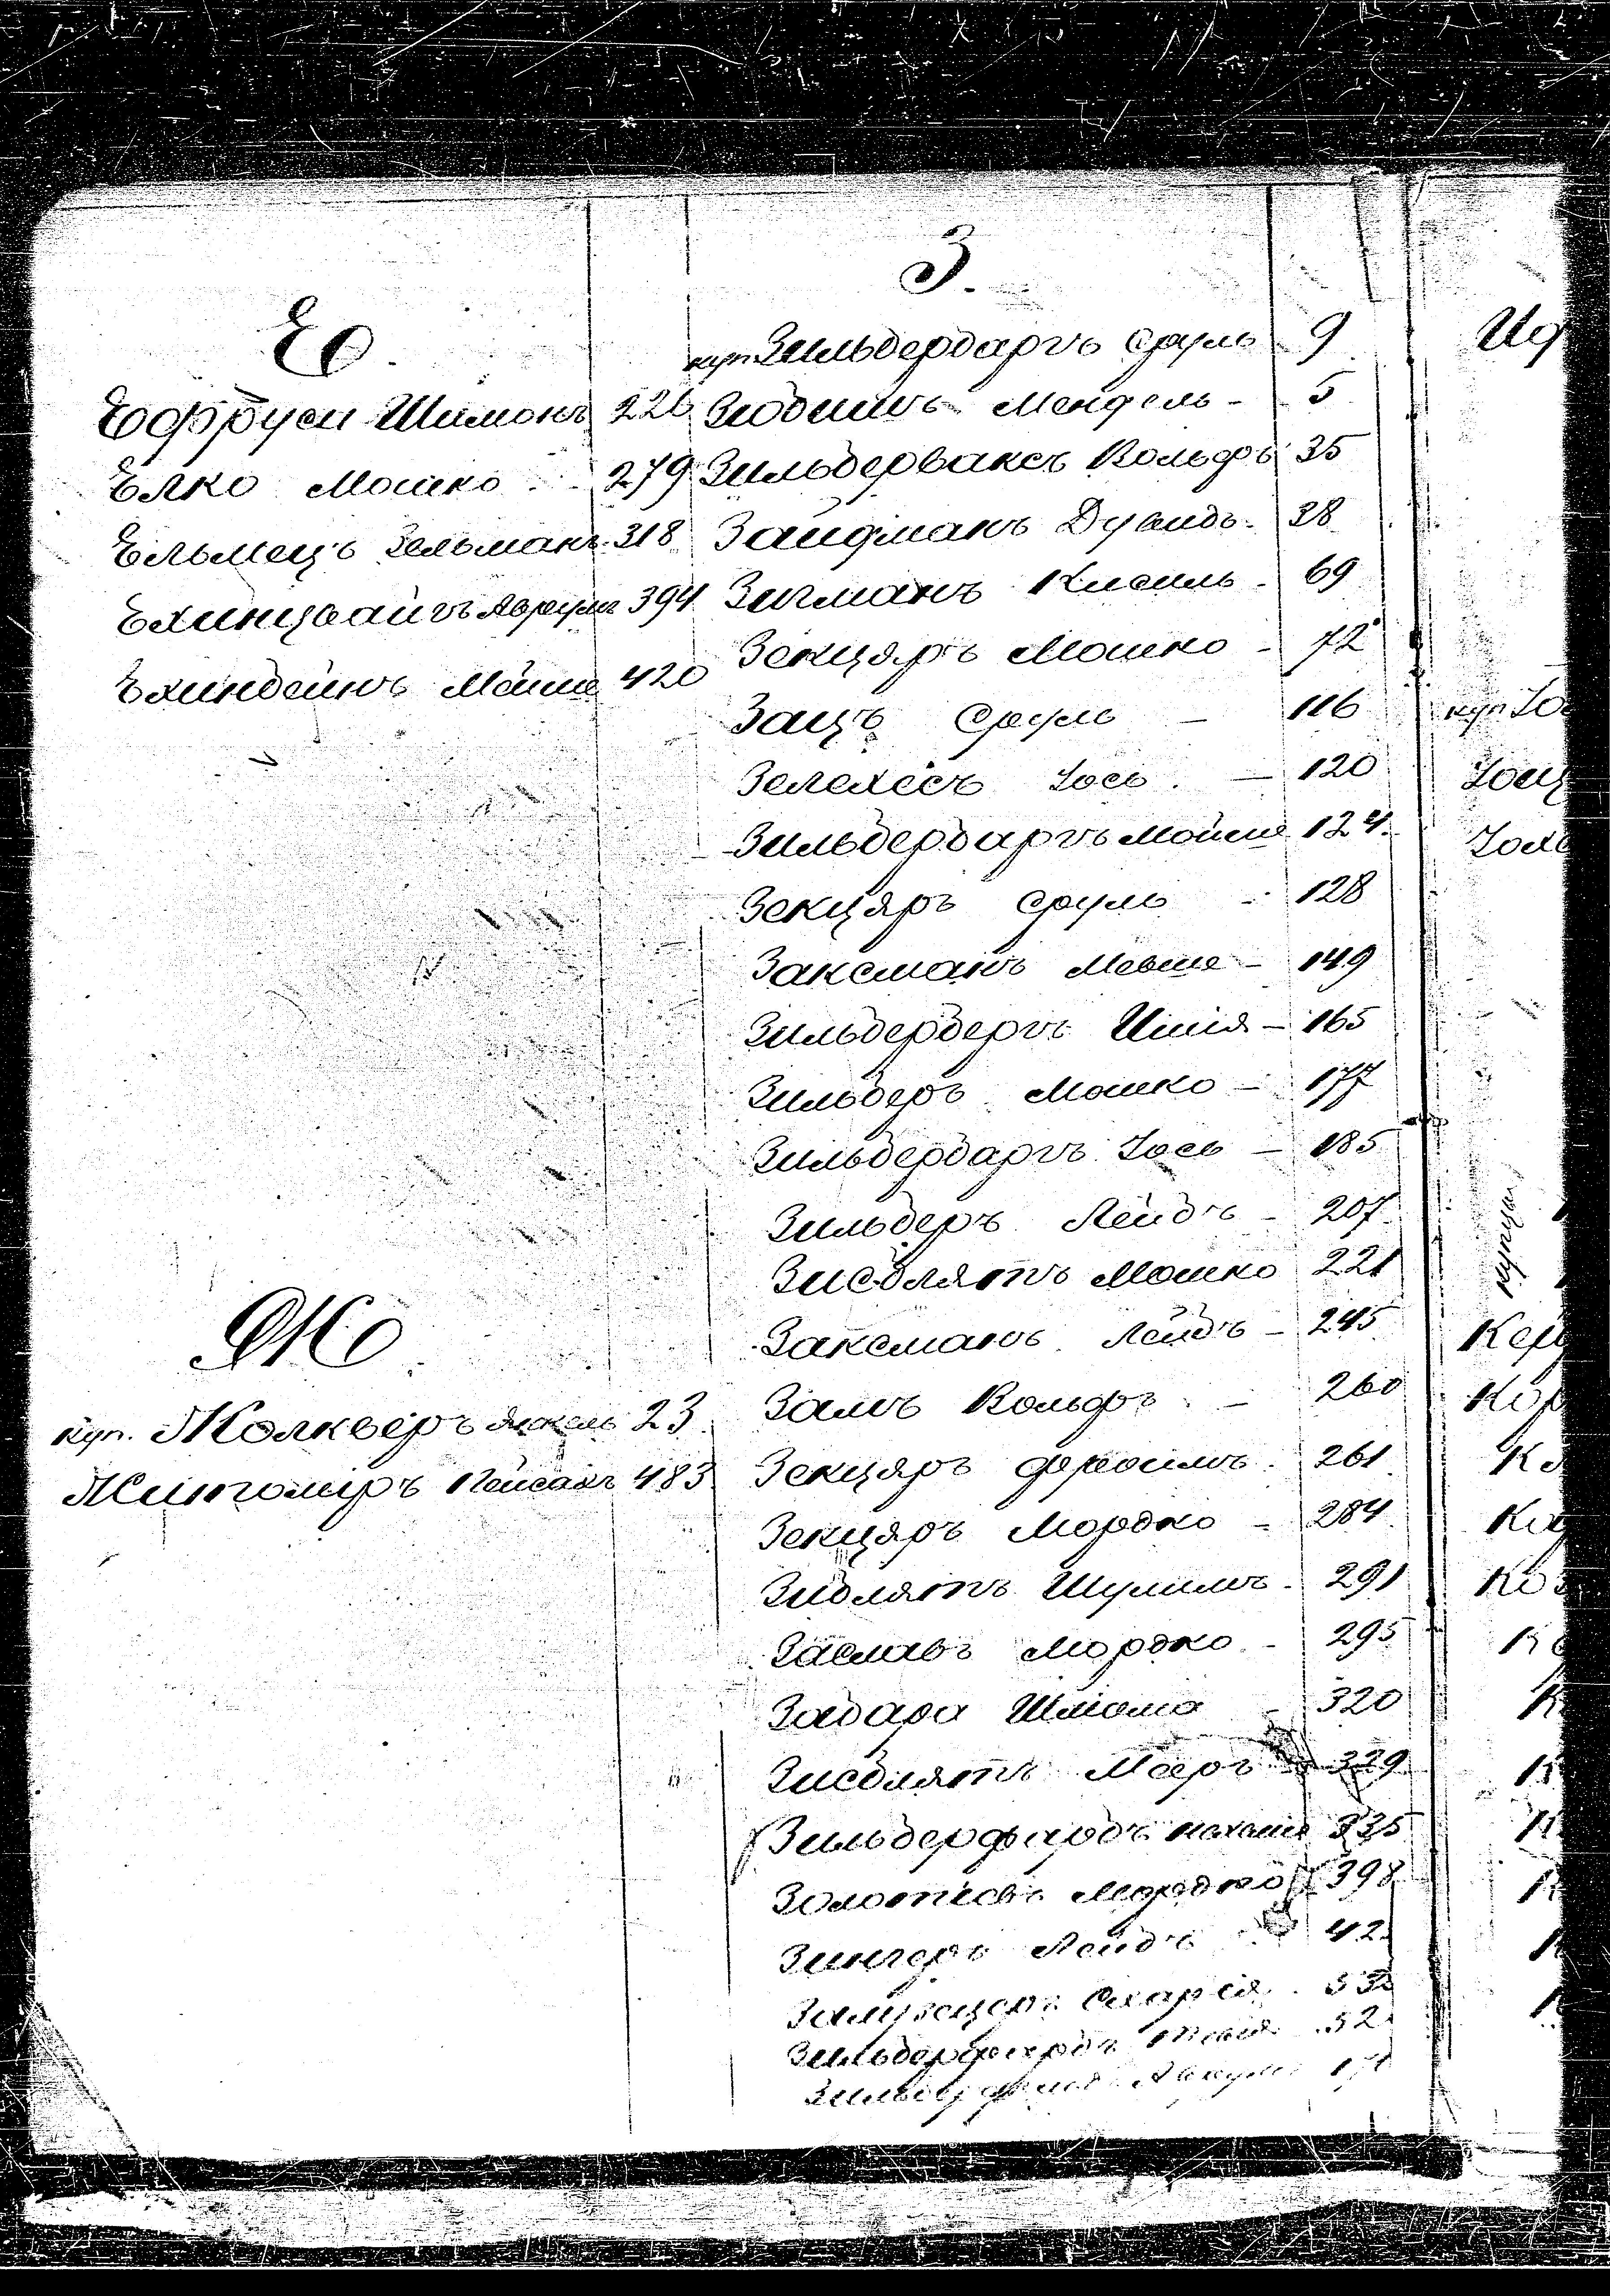 Е.
Еффруси Шимонъ 226
Елко Мошко 279
Ельмецъ Зельманъ 318
Ехинцвайгъ Аврумъ 394
Ехинбейнъ Мойше 420
Ж
куп. Жолкверъ Янкель 23
Житомиръ Пейсахъ 483
З.
куп Зильбербаргъ Сруль 9
Мендель - 5
Зильберваксъ Вольфъ 35
Зайдманъ Дувидъ - 38
Зигманъ Кисиль - 69
Зекцяръ Мошко - 72
Зацъ Сруль - 116
Зелехесъ Іось - 120
Зильбербаргъ Мойше 124
Зекцяръ Сруль - 128
Заксманъ Мевше - 149
Зильберберегъ Ишія - 165
Зильберъ Мошко - 177
Зильбербаргъ Іось - 185
Зильберъ Лейбъ - 207
Зисблятъ Мошко 221
Заксманъ Лейбъ - 245
Залъ Вольфъ - 260
Зекцяръ Фроимъ 261
Зекцяръ Мордко - 284
Зиблятъ Шулимъ - 291
Заславъ Мордко - 295
Забара Шліома - 320
Зисблятъ Мееръ 329
Зильберфарбъ 335
Мордко 398
Зингеръ Лейбъ 42
Сахарія
Зильберфарбъ
Ид
куп Іо
Іоц
Іохе
купцы
Кер
Кор
Ка
Ко